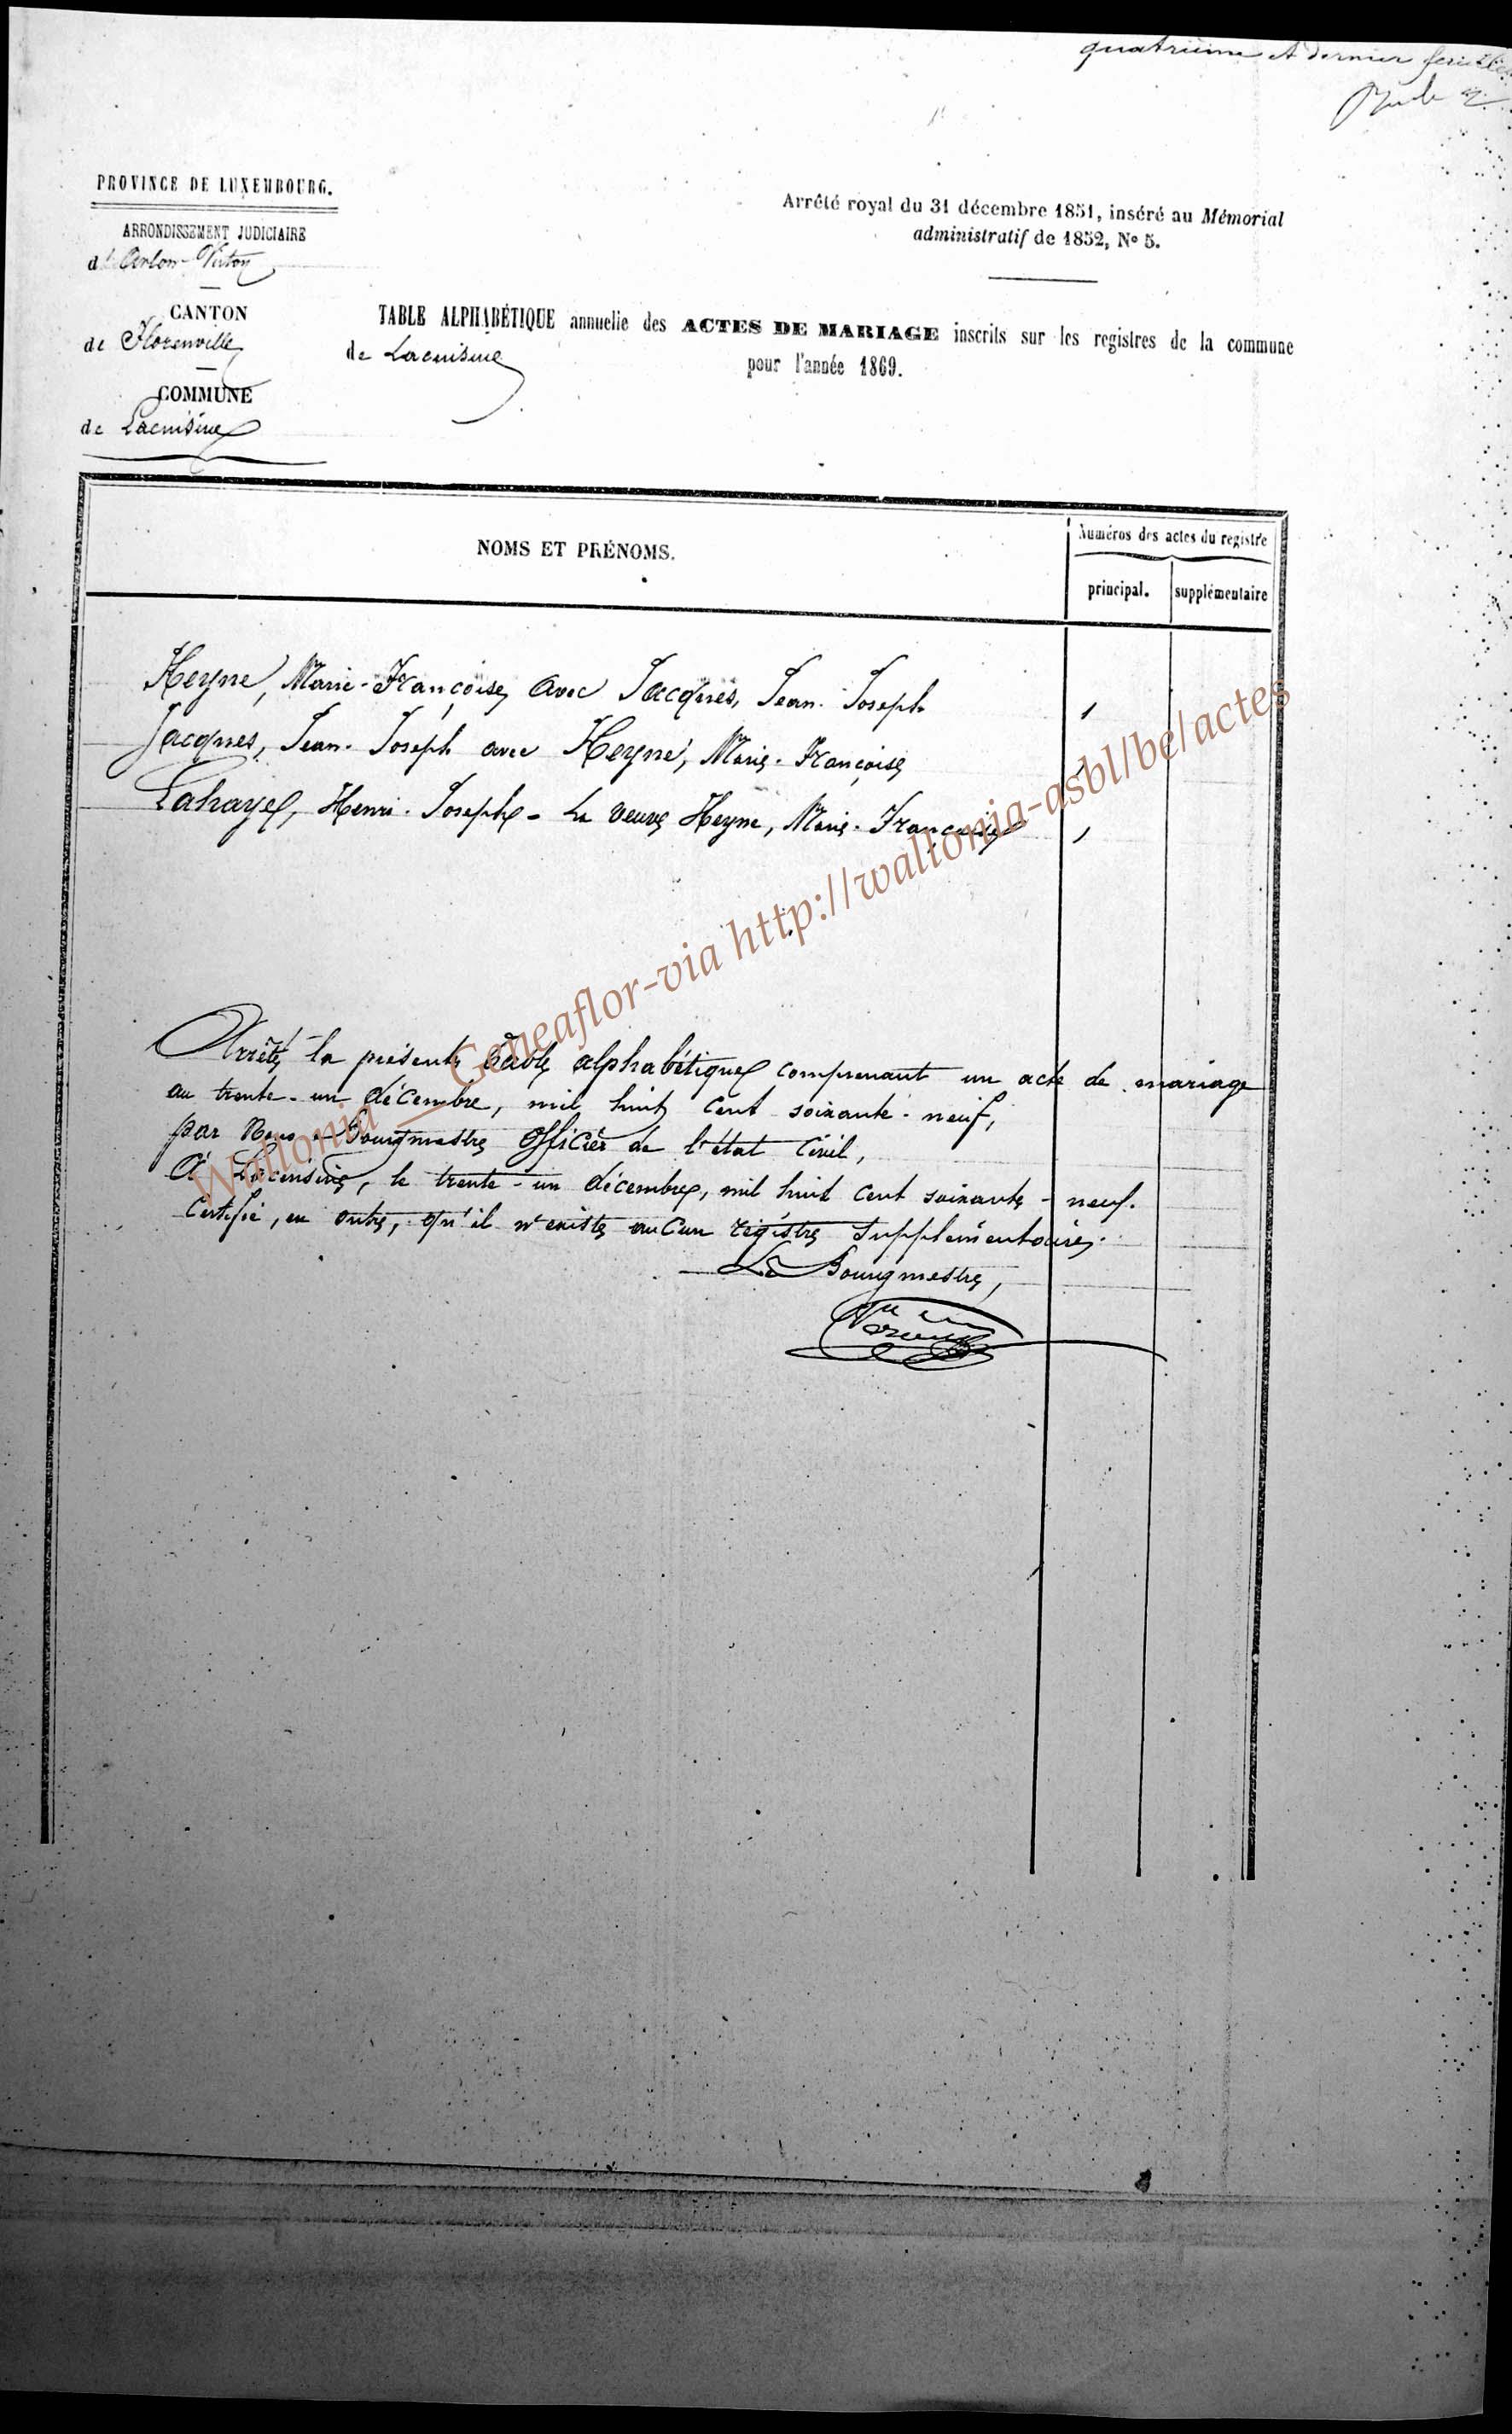 quatrième et dernier feuillet
PROVINCE DE LUXEMBOURG.
ARRONDISSEMENT JUDICIAIRE
d'Arlon-Virton
CANTON
de Florenville
COMMUNE
de Lacuisine
Arrêté royal du 31 décembre 1851, inséré au Mémorial
administratif de 1852, No 5.
TABLE ALPHABÉTIQUE annuelle des ACTES DE MARIAGE inscrits sur les registres de la commune
de Lacuisine pour l'année 1869.
NOMS ET PRÉNOMS.
Numéros des actes du registre
principal. supplémentaire
Heyne, Marie-Françoise, avec Jacques, Jean-Joseph 1
Jacques, Jean-Joseph avec Heyne, Marie-Françoise 1
Lahaye, Henri-Joseph - La veuve Heyne, Marie-Françoise 1
Arrêté, la présente table alphabétique comprenant un acte de mariage
au trente-un décembre, mil huit cent soixante-neuf,
par Nous Bourgmestre officier de l'état civil,
À Lacuisine, le trente-un décembre, mil huit cent soixante-neuf.
Certifié, en outre, qu'il n'existe aucun registre supplémentaire.
Le Bourgmestre,
Wallonia - Geneaflor-via http://wallonia-asbl/be/actes